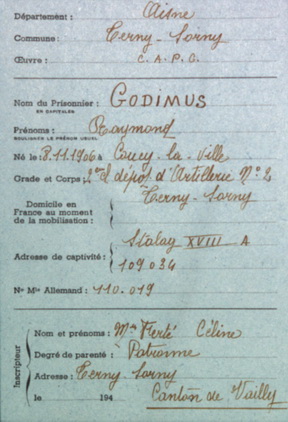 Département : Aisne
Commune : Terny-Sorny
Œuvre : C. A. P. G.
Nom du Prisonnier : GODIMUS
EN CAPITALES
Prénoms : Raymond
SOULIGNER LE PRÉNOM USUEL
Né le : 8.11.1906 à Coucy-la-Ville
Grade et Corps : 2me Cl dépôt d'Artillerie N° 2
Domicile en France au moment de la mobilisation : Terny-Sorny
Adresse de captivité : Stalag XVIII A
109.034
No Mle Allemand : 110.019
Inscripteur
Nom et prénoms : Mme Ferté Céline
Degré de parenté : Patronne
Adresse : Terny-Sorny
le 194 Canton de Vailly